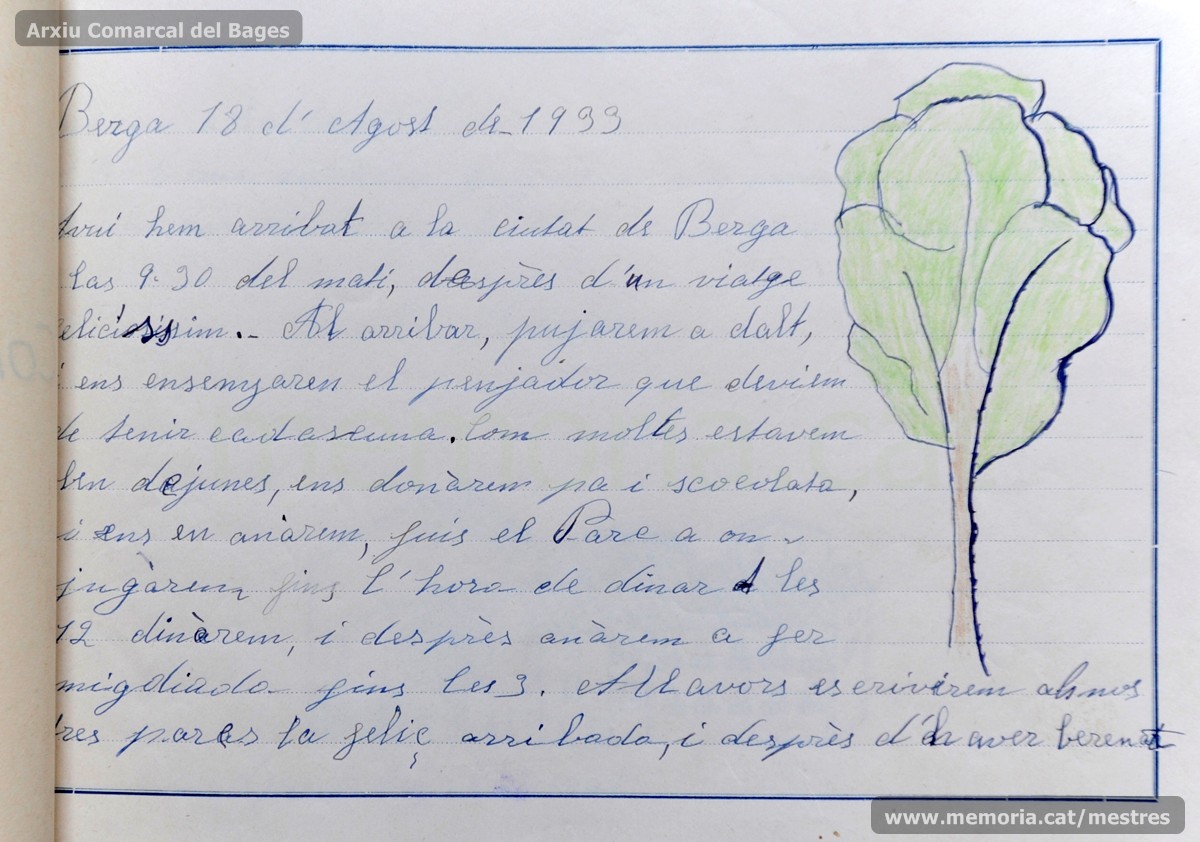 Arxiu Comarcal del Bages
Berga 18 d' Agost de_1933
Avui hem arribat a la ciutat de Berga
las 9-30 del matí, desprès d'un viatge
feliciossissim._ Al arribar, pujarem a dalt,
i ens ensenyaren el penjador que deviem
de tenir cadascuna. Com moltes estavem
ben dejunes, ens donàrem pa i xocolata,
i ens en anàrem, fins el Parc a on
jugàrem fins l'hora de dinar A les
12 dinàrem, i desprès anàrem a fer
migdiada fins les 3. Allavors escrivirem als nos
tres pares la feliç arribada, i desprès d'haver berenat
www.memoria.cat/mestres